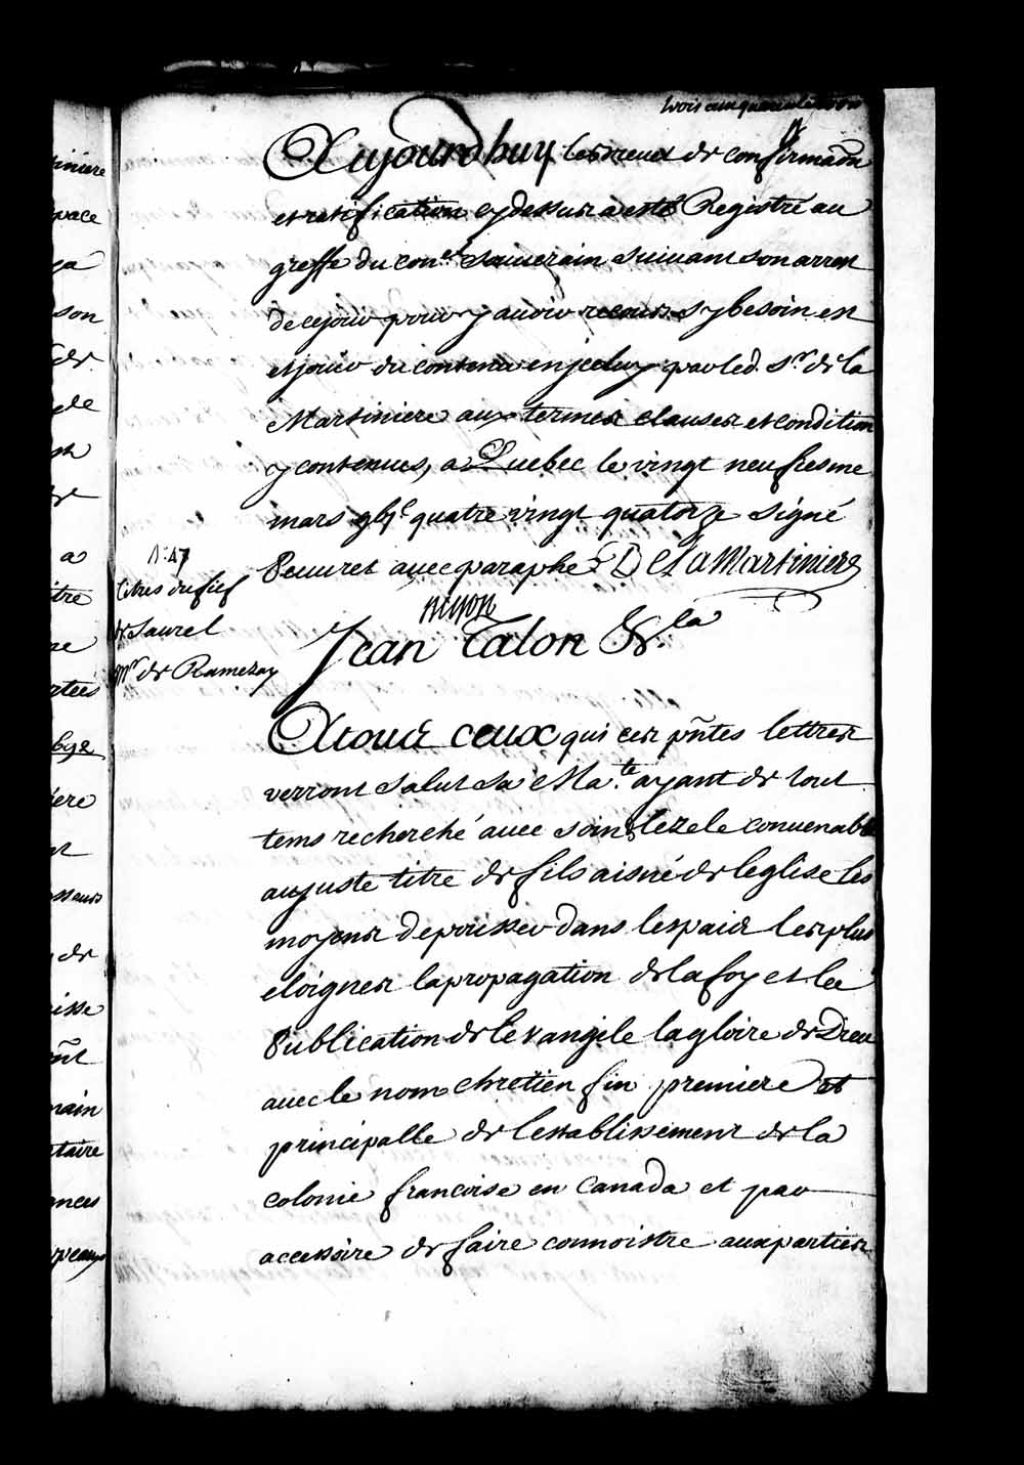 trois cinquante
Aujourdhuy Les brevet de confirmaõn
et ratification cy dessus a esté Registré au
greffe du con.el Souuerain Suiuant son arrest
de ce jour pour y auoir recours sy besoin est
et jouir du contenu en jceluy par led. Sr. de la
Martiniere aux termes clauses et condition
y contenues, a Quebec le vingt neufiesme
mars gbjc quatre vingt quatorze signé
Peuuret auec paraphe DeLaMartiniere
Jean Talon &.la
N: 47
titres du fief
de Saurel
Mr de Ramezay
A tous ceux qui ces pñtes lettres
verront Salut Sa Ma.té ayant de tout
tems recherché auec soin & le zele conuenable
au juste titre de fils aisné de leglise les
moyens de pousser dans les pais les plus
eloignes la propagation de la foy et la
Publication de levangile la gloire de Dieu
auec le nom chretien fin premiere et
principalle de lestablissement de la
colonie francoise en Canada et par
accessoire de faire connoistre aux parties